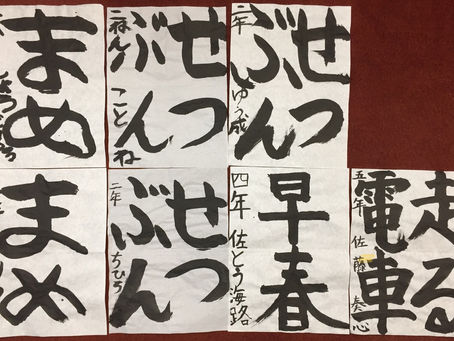 せつ
ぶん
二年 ゆう成
せつ
ぶん
二ねん ことね
まめ
走る
電車
五年 佐藤奏心
早春
四年 佐とう海路
せつ
ぶん
二年 ちひろ
まめ